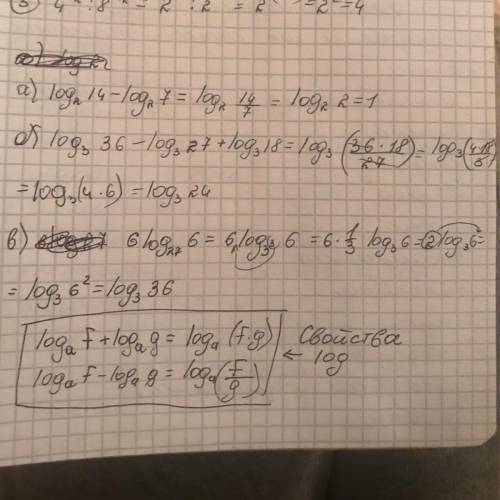 а) log₂ 14 - log₂ 7 = log₂ 14/7 = log₂ 2 = 1
б) log₃ 36 - log₃ 27 + log₃ 18 = log₃ (36·18/27) = log₃ (4·18/3)
= log₃ (4·6) = log₃ 24
в) 6 log₂₇ 6 = 6 log₃³ 6 = 6·1/3 log₃ 6 = 2 log₃ 6 =
= log₃ 6² = log₃ 36
logₐ f + logₐ g = logₐ (f·g) Свойства
logₐ f - logₐ g = logₐ (f/g) ← log